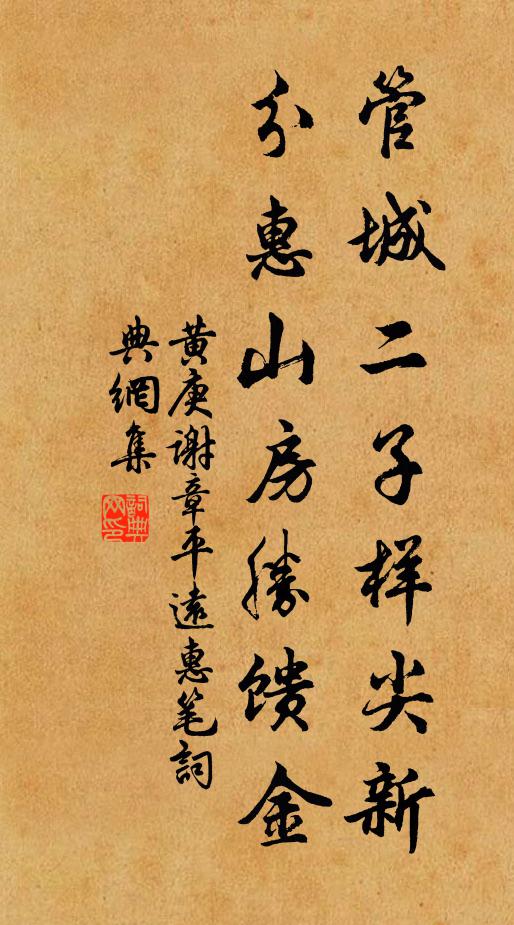 管城二子样尖新
分惠山房勝馈金
黄庚谢章平遠惠笔詞
典網集
詞典網印